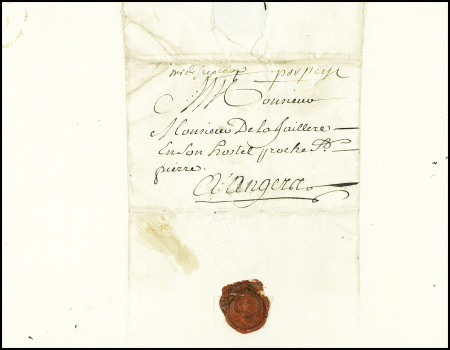 port payé
Monsieur
Monsieur De la Jaillere
En Son hostel proche St
pierre.
A Angers